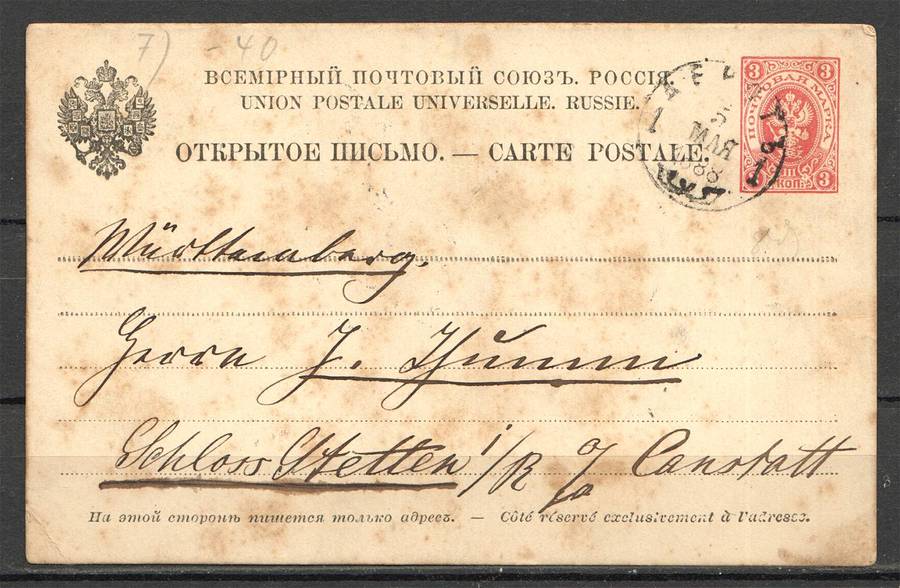 7) -40
ВСЕМІРНЫЙ ПОЧТОВЫЙ СОЮЗЪ. РОССІЯ
UNION POSTALE UNIVERSELLE. RUSSIE.
ОТКРЫТОЕ ПИСЬМО. — CARTE POSTALE.
3 3
ПОЧТОВАЯ МАРКА
КОП.
3 3
1
5
МАЯ
1
Württemberg.
Herrn J. Thumm
Schloss Stetten i/R a/ Canstatt
На этой сторонѣ пишется только адресъ. — Côté réservé exclusivement à l'adresse.